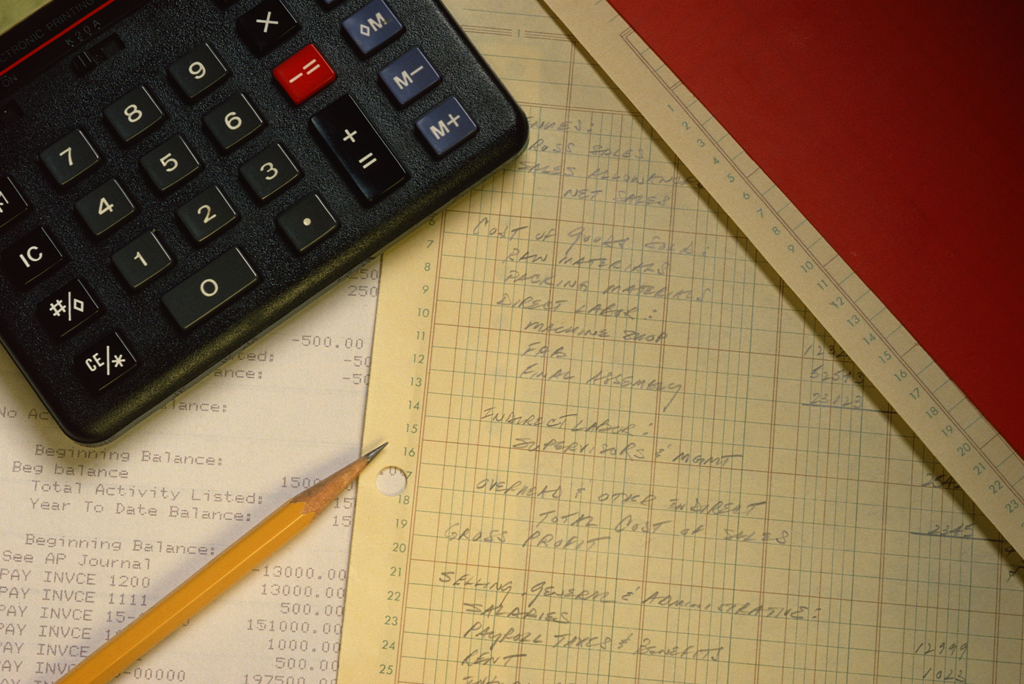 ECTRONIC PRINTING
ON
× ◊M
9 -= M-
8 6 + = M+
7 5 3
4 2 .
IC 1 0
#/◊
CE/*
GROSS SALES
NET SALES
COST OF GOODS SOLD:
RAW MATERIALS
PACKING MATERIALS
DIRECT LABOR:
MACHINE SHOP
FAB
FINAL ASSEMBLY
INDIRECT LABOR:
SUPERVISORS & MGMT
OVERHEAD & OTHER INDIRECT
TOTAL COST OF SALES 2345
GROSS PROFIT
SELLING, GENERAL & ADMINISTRATIVE:
SALARIES
PAYROLL TAXES & BENEFITS 12999
RENT 1023
7
8
9
10
11
12
13
14
15
16
18
19
20
21
22
23
24
25
1
2
3
4
5
6
7
8
9
10
11
12
13
14
15
16
17
18
19
20
21
22
23
250
-500.00
ted: -50
ance: -50
No Ac Balance:
Beginning Balance:
Beg balance 1500
Total Activity Listed: 15
Year To Date Balance: 15
Beginning Balance:
See AP Journal -13000.00
PAY INVCE 1200 13000.00
PAY INVCE 1111 500.00
PAY INVCE 15- 151000.00
PAY INVCE 1000.00
PAY INV 500.00
-00000 197500.00